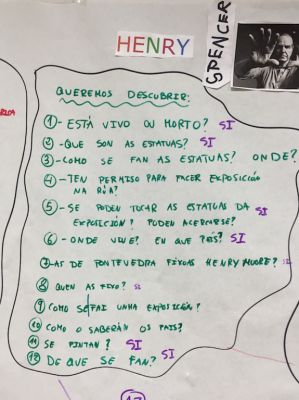 HENRY
SPENCER
QUEREMOS DESCUBRIR:
1- ESTÁ VIVO OU MORTO? SI
2- QUE SON AS ESTATUAS? SI
3- COMO SE FAN AS ESTATUAS? ONDE?
4- TEN PERMISO PARA FACER EXPOSICIÓN
NA RÚA?
5- SE PODEN TOCAR AS ESTATUAS DA
EXPOSICIÓN? PODEN ACERCARSE? SI
6- ONDE VIVE? EN QUE PAÍS? SI
7- AS DE PONTEVEDRA FIXOAS HENRY MOORE? SI
8 QUEN AS FIXO? SI
9 COMO SE FAI UNHA EXPOSICIÓN?
10 COMO O SABERÁN OS PAIS?
11 SE PINTAN? SI
12 DE QUE SE FAN? SI